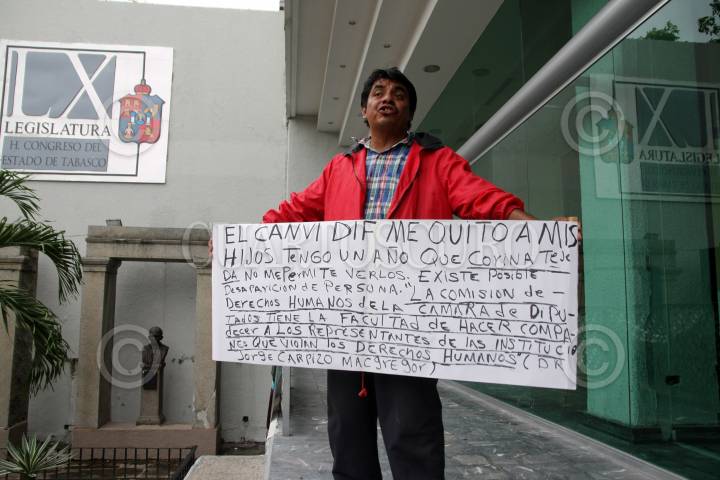 LX
LEGISLATURA
H. CONGRESO DEL
ESTADO DE TABASCO
EL CANVI DIF ME QUITO A MIS
HIJOS TENGO UN AÑO QUE CORINA TEJE
DA. NO ME PERMITE VERLOS. EXISTE POSIBLE
DESAPARICIÓN DE PERSONA." LA COMISION DE-
DERECHOS HUMANOS DE LA CAMARA DE DIPU-
TADOS TIENE LA FACULTAD DE HACER COMPA-
DECER A LOS REPRESENTANTES DE LAS INSTITUCIO
NES QUE VIOLAN LOS DERECHOS HUMANOS" (DR
JORGE CARPIZO MACGREGOR)
CUARTOSCURO
©
LX
LEGISLATURA